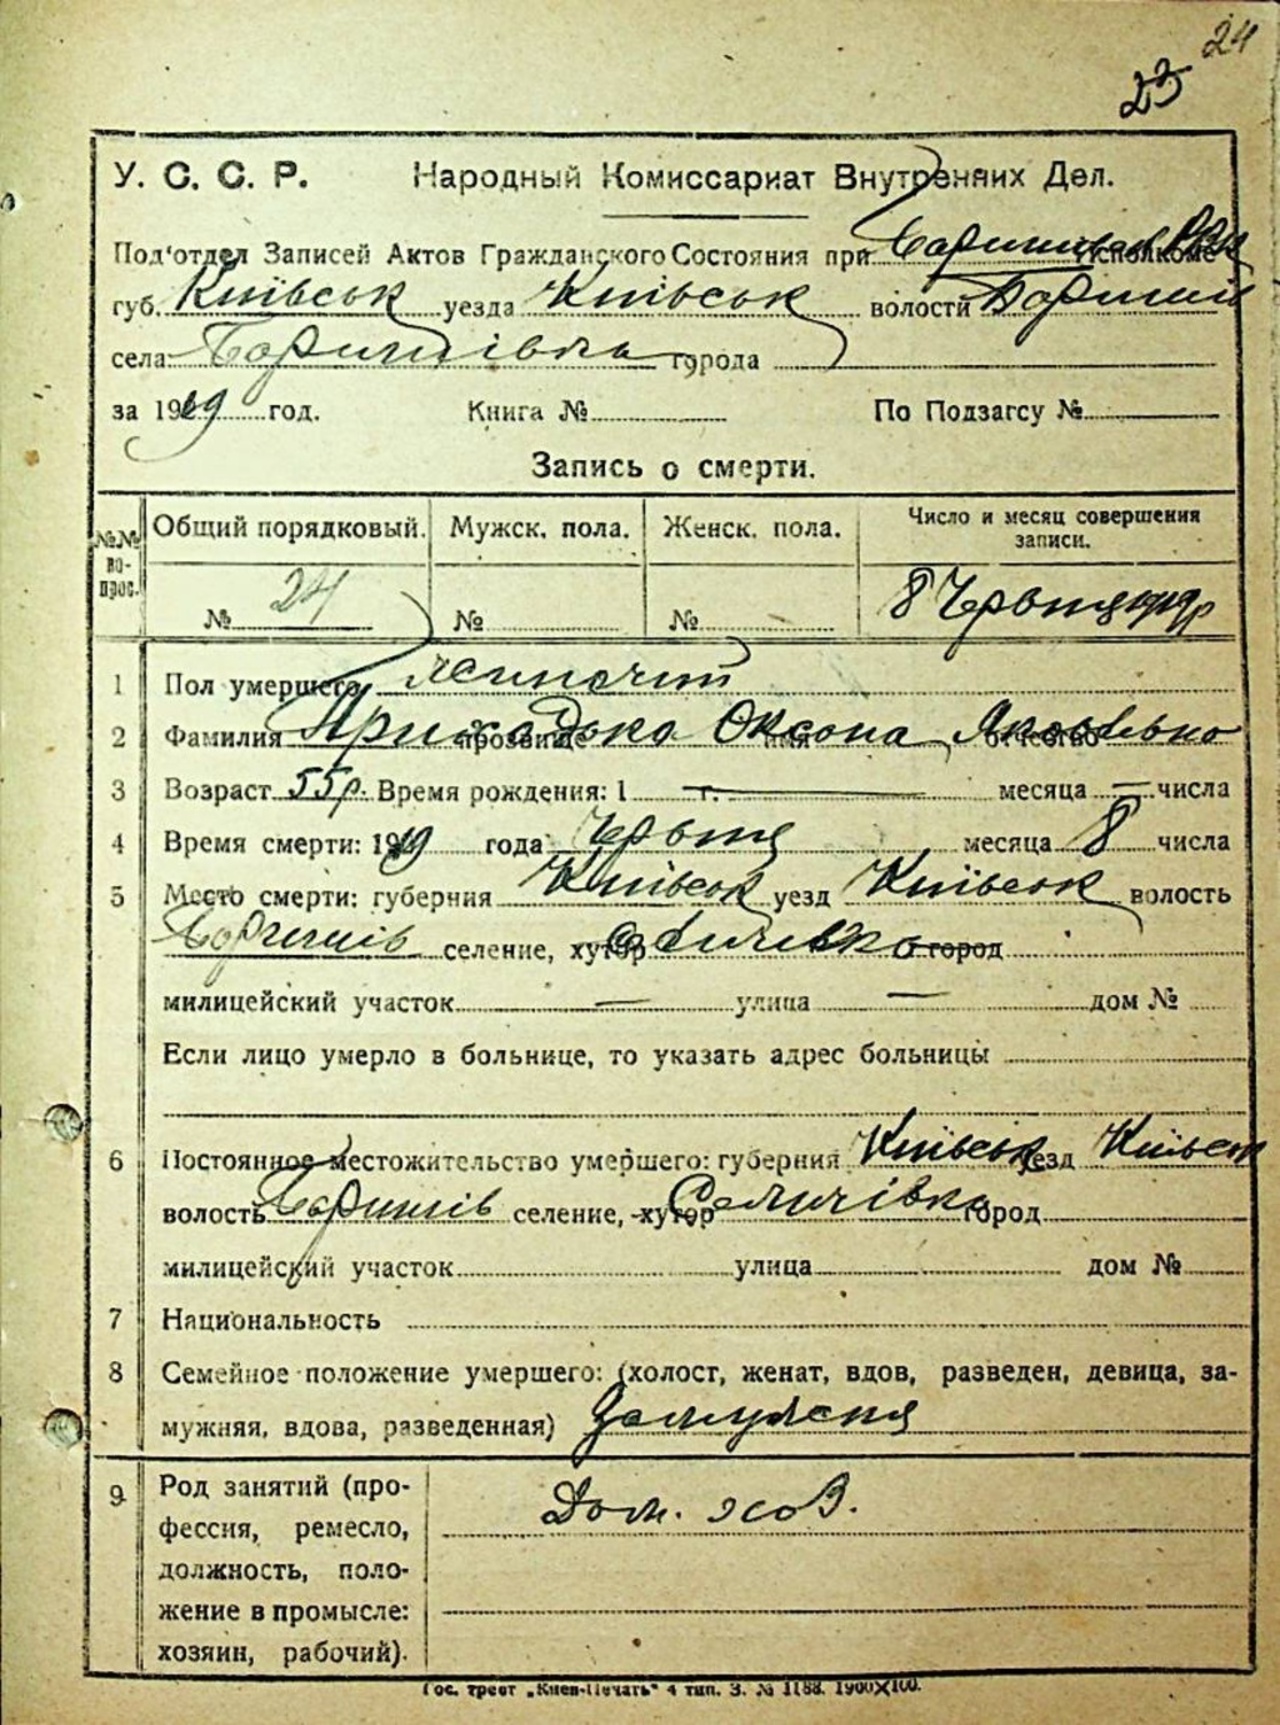 24
23
У. С. С. Р. Народный Комиссариат Внутренних Дел.
Под'отдел Записей Актов Гражданского Состояния при Исполкоме
губ. Київськ уезда Київськ волости Баришів
села Баришівка города
за 1919 год. Книга № По Подзагсу №
Запись о смерти.
№№ вопрос. Общий порядковый. Мужск. пола. Женск. пола. Число и месяц совершения записи.
№ 24 № № 8 Червня 1919 р
1 Пол умершего
2 Фамилия прозвище имя отчество Приходько Оксана Яковльна
3 Возраст 55 р. Время рождения: 1 г. — месяца — числа
4 Время смерти: 1919 года Червня месяца 8 числа
5 Место смерти: губерния Київськ уезд Київськ волость
Баришів селение, хутор Селичівка город
милицейский участок — улица — дом №
Если лицо умерло в больнице, то указать адрес больницы
6 Постоянное местожительство умершего: губерния Київськ уезд Київськ
волость Баришів селение, хутор Селичівка город
милицейский участок улица дом №
7 Национальность
8 Семейное положение умершего: (холост, женат, вдов, разведен, девица, за-
мужняя, вдова, разведенная) Замужня
9 Род занятий (про-
фессия, ремесло,
должность, поло-
жение в промысле:
хозяин, рабочий).
Дом. хоз.
Гос. трест „Киев-Печать" 4 тип. З. № 1188. 1900X100.